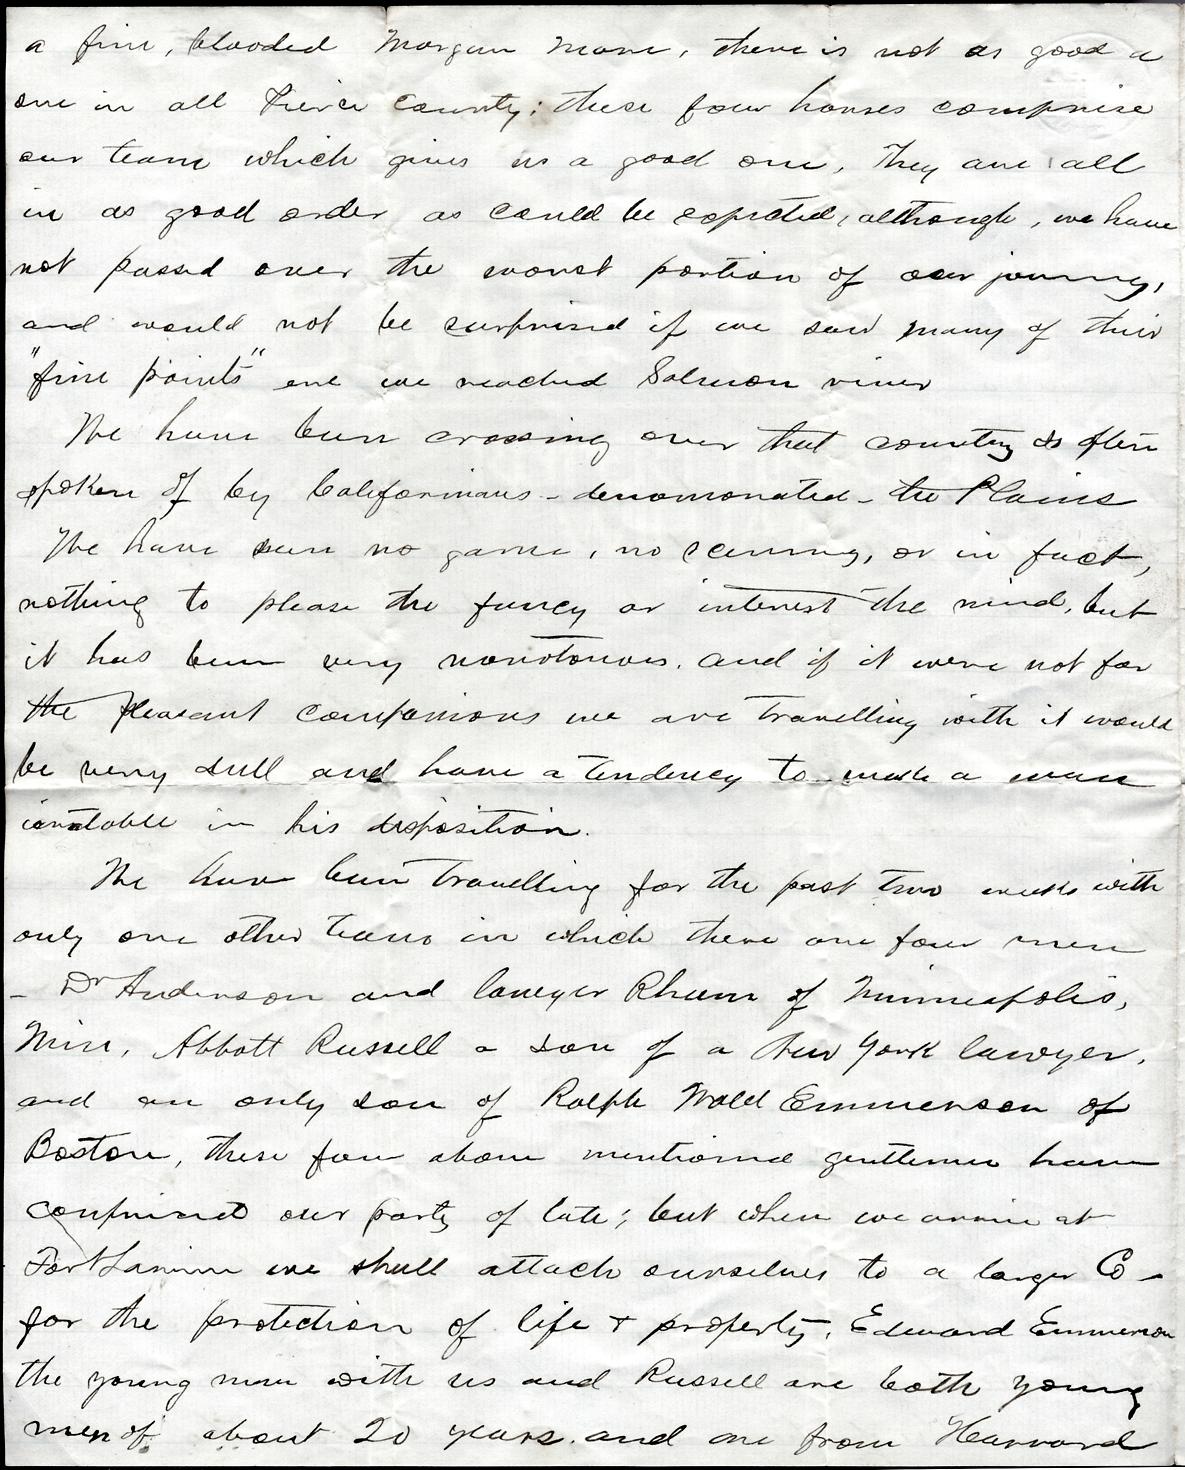 a fine, blooded Morgan mare, there is not as good a
one in all Pierce County; these four horses comprise
our team which gives us a good one, They are all
in as good order as could be expected, although, we have
not passed over the worst portion of our journey,
and would not be surprised if we saw many of their
"fine points" ere we reached Salmon river
We have been crossing over that country so often
spoken of by Californians - denomonated - the Plains
We have seen no game, no scenery, or in fact,
nothing to please the fancy or interest the mind, but
it has been very monotonous. and if it were not for
the pleasant companions we are travelling with it would
be very dull and have a tendency to make a man
irratable in his disposition.
We have been travelling for the past two weeks with
only one other team in which there are four men
- Dr Anderson and lawyer Rheem of Minneapolis,
Minn, Abbott Russell a son of a New York lawyer,
and an only son of Ralph Waldo Emmerson of
Boston, these four above mentioned gentlemen have
comprised our party of late; but when we arrive at
Fort Laramie we shall attach ourselves to a larger Co -
for the protection of life + property, Edward Emmerson
the young man with us and Russell are both young
men of about 20 years. and are from Harvard